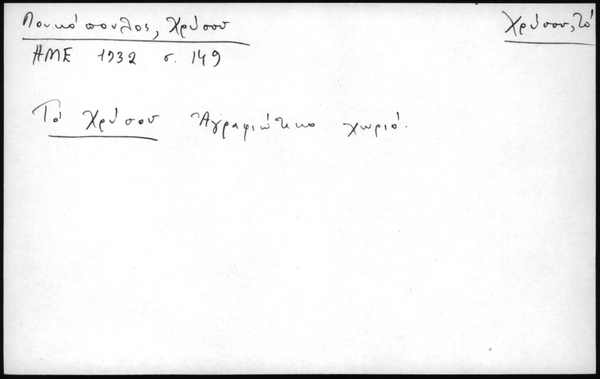 Λουκόπουλος, Χρύσου
Χρύσου, τό
ΗΜΕ 1932 σ. 149
Τό Χρύσου Ἀγραφιώτικο χωριό.